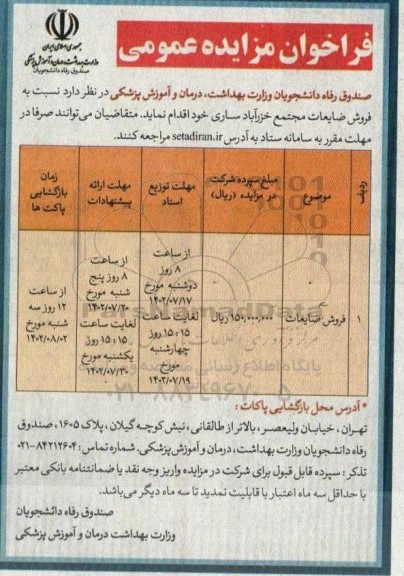 جمهوری اسلامی ایران
وزارت بهداشت، درمان و آموزش پزشکی
صندوق رفاه دانشجویان
فراخوان مزایده عمومی
صندوق رفاه دانشجویان وزارت بهداشت، درمان و آموزش پزشکی در نظر دارد نسبت به
فروش ضایعات مجتمع خزرآباد ساری خود اقدام نماید. متقاضیان می‌توانند صرفا در
مهلت مقرر به سامانه ستاد به آدرس setadiran.ir مراجعه کنند.
ردیف
موضوع
مبلغ سپرده شرکت
در مزایده (ریال)
مهلت توزیع
اسناد
مهلت ارائه
پیشنهادات
زمان
بازگشایی
پاکت ها
۱
فروش ضایعات
۱۵۰,۰۰۰,۰۰۰ ریال
از ساعت
۸ روز
دوشنبه مورخ
۱۴۰۲/۰۷/۱۷
لغایت ساعت
۱۵:۱۵ روز
چهارشنبه
مورخ
۱۴۰۲/۰۷/۱۹
از ساعت
۸ روز پنج
شنبه مورخ
۱۴۰۲/۰۷/۲۰
لغایت ساعت
۱۵:۱۵ روز
یکشنبه مورخ
۱۴۰۲/۰۷/۳۰
از ساعت
۱۲ روز سه
شنبه مورخ
۱۴۰۲/۰۸/۰۲
* آدرس محل بازگشایی پاکات :
تهران ، خیابان ولیعصر ، بالاتر از طالقانی ، نبش کوچه گیلان ، پلاک ۱۶۰۵، صندوق
رفاه دانشجویان وزارت بهداشت، درمان و آموزش پزشکی. شماره تماس : ۸۴۲۱۲۶۰۴-۰۲۱
تذکر : سپرده قابل قبول برای شرکت در مزایده واریز وجه نقد یا ضمانتنامه بانکی معتبر
با حداقل سه ماه اعتبار با قابلیت تمدید تا سه ماه دیگر می‌باشد.
صندوق رفاه دانشجویان
وزارت بهداشت درمان و آموزش پزشکی